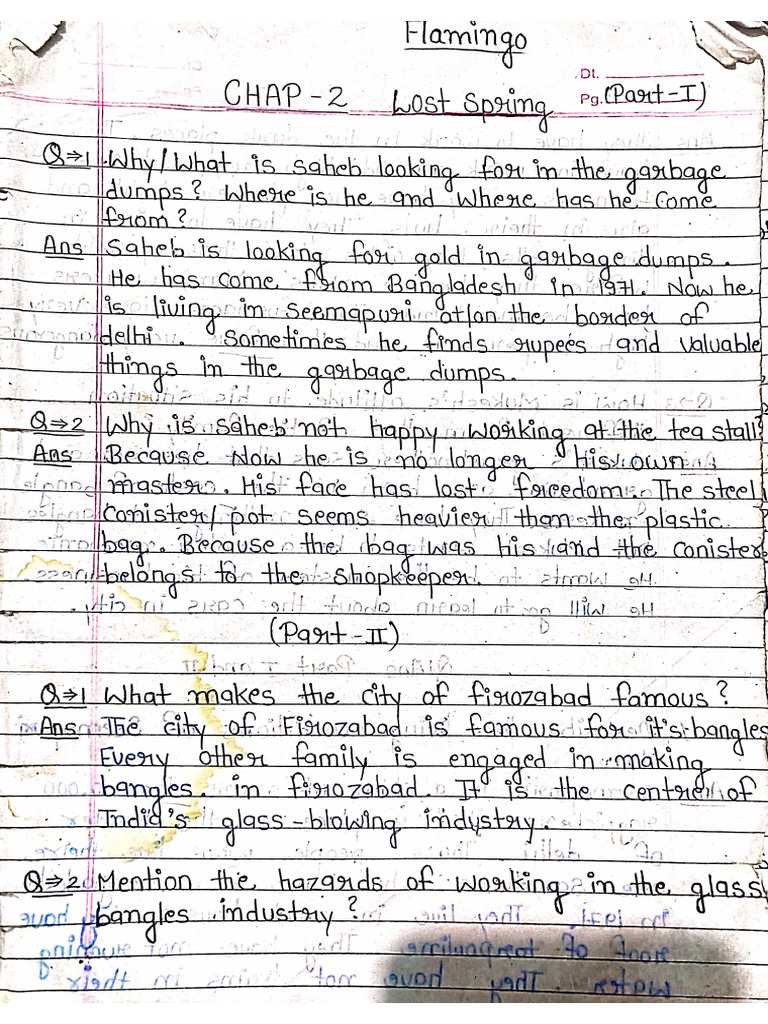 Flamingo
Dt.
CHAP-2 Lost Spring Pg. (Part-I)
Q⇒1 Why/What is saheb looking for in the garbage
dumps? Where is he and Where has he Come
from?
Ans Saheb is looking for gold in garbage dumps.
He has come from Bangladesh in 1971. Now he
is living in Seemapuri at/on the border of
delhi. Sometimes he finds rupees and valuable
things in the garbage dumps.
Q⇒2 Why is saheb not happy working at the tea stall?
Ans Because Now he is no longer His own
master. His face has lost freedom. The steel
conister/pot seems heavier than the plastic
bag. Because the bag was his and the conister
belongs to the shopkeeper.
(Part-II)
Q⇒1 What makes the city of firozabad famous?
Ans The city of Firozabad is famous for it's bangles
Every other family is engaged in making
bangles. in firozabad. It is the centre of
India's glass-blowing industry.
Q⇒2 Mention the hazards of working in the glass
bangles industry?